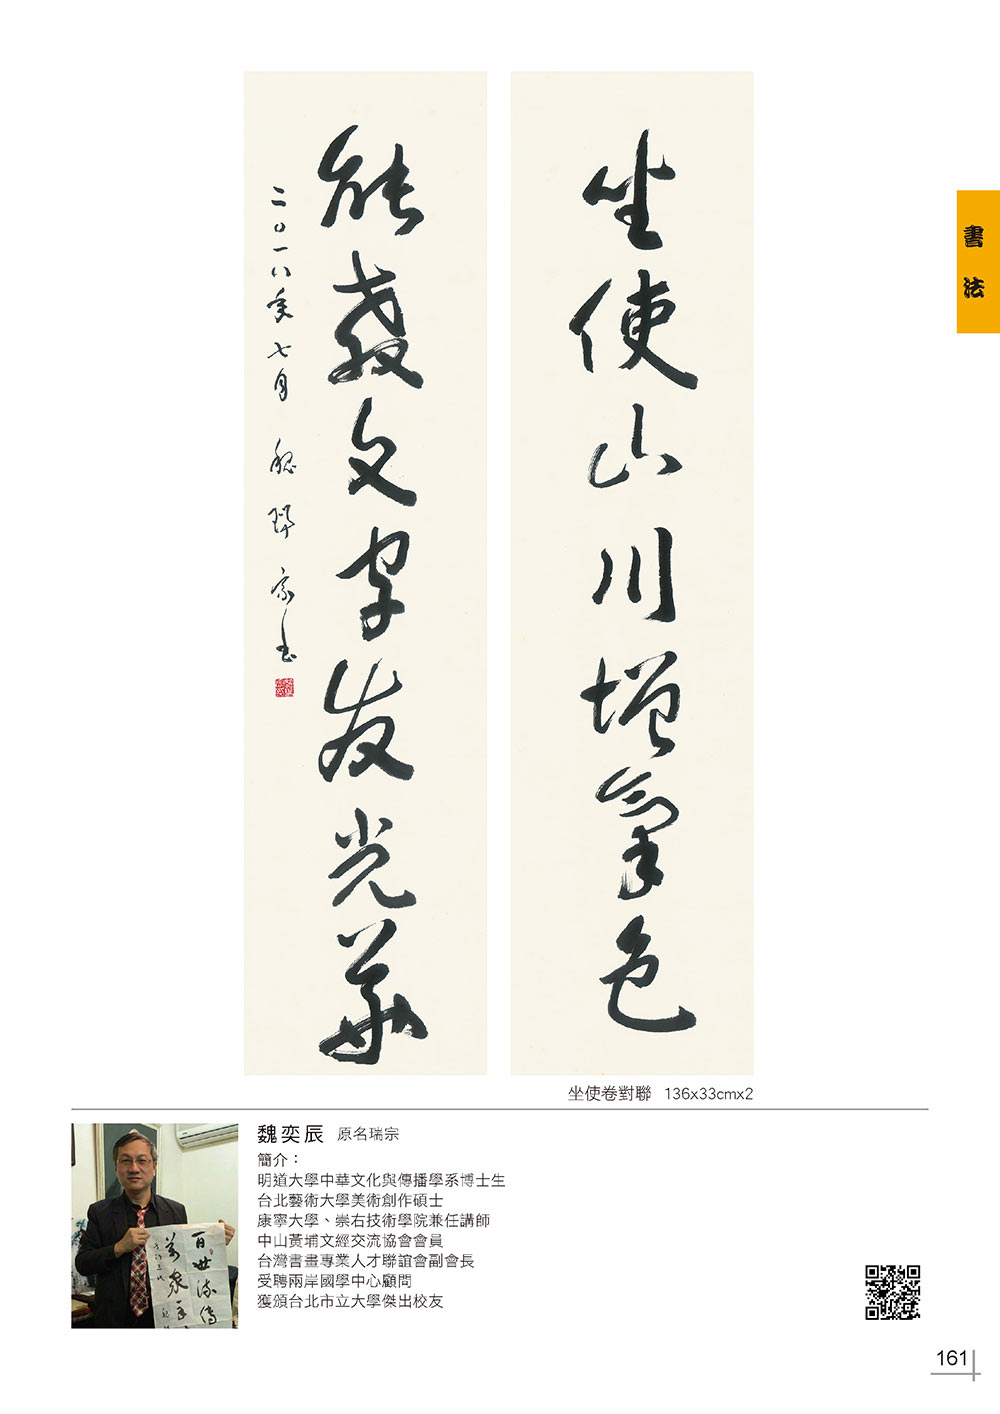 坐使山川增氣色
能教文字發光華
二〇一八年七月 魏瑞宗書
書法
坐使卷對聯 136x33cmx2
魏奕辰 原名瑞宗
簡介：
明道大學中華文化與傳播學系博士生
台北藝術大學美術創作碩士
康寧大學、崇右技術學院兼任講師
中山黃埔文經交流協會會員
台灣書畫專業人才聯誼會副會長
受聘兩岸國學中心顧問
獲頒台北市立大學傑出校友
百世流傳
161